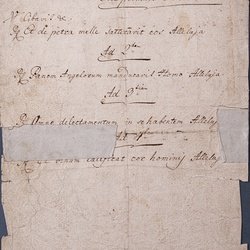 V Cibavis &c.
R Et de petra melle saturavit eos Alleluja
Ad
R Panem Angelorum manducavit Homo Alleluja
Ad
R Omne delectamentum in se habentem Alleluja
Ad
R Et vinum laetificet cor hominis Alleluja